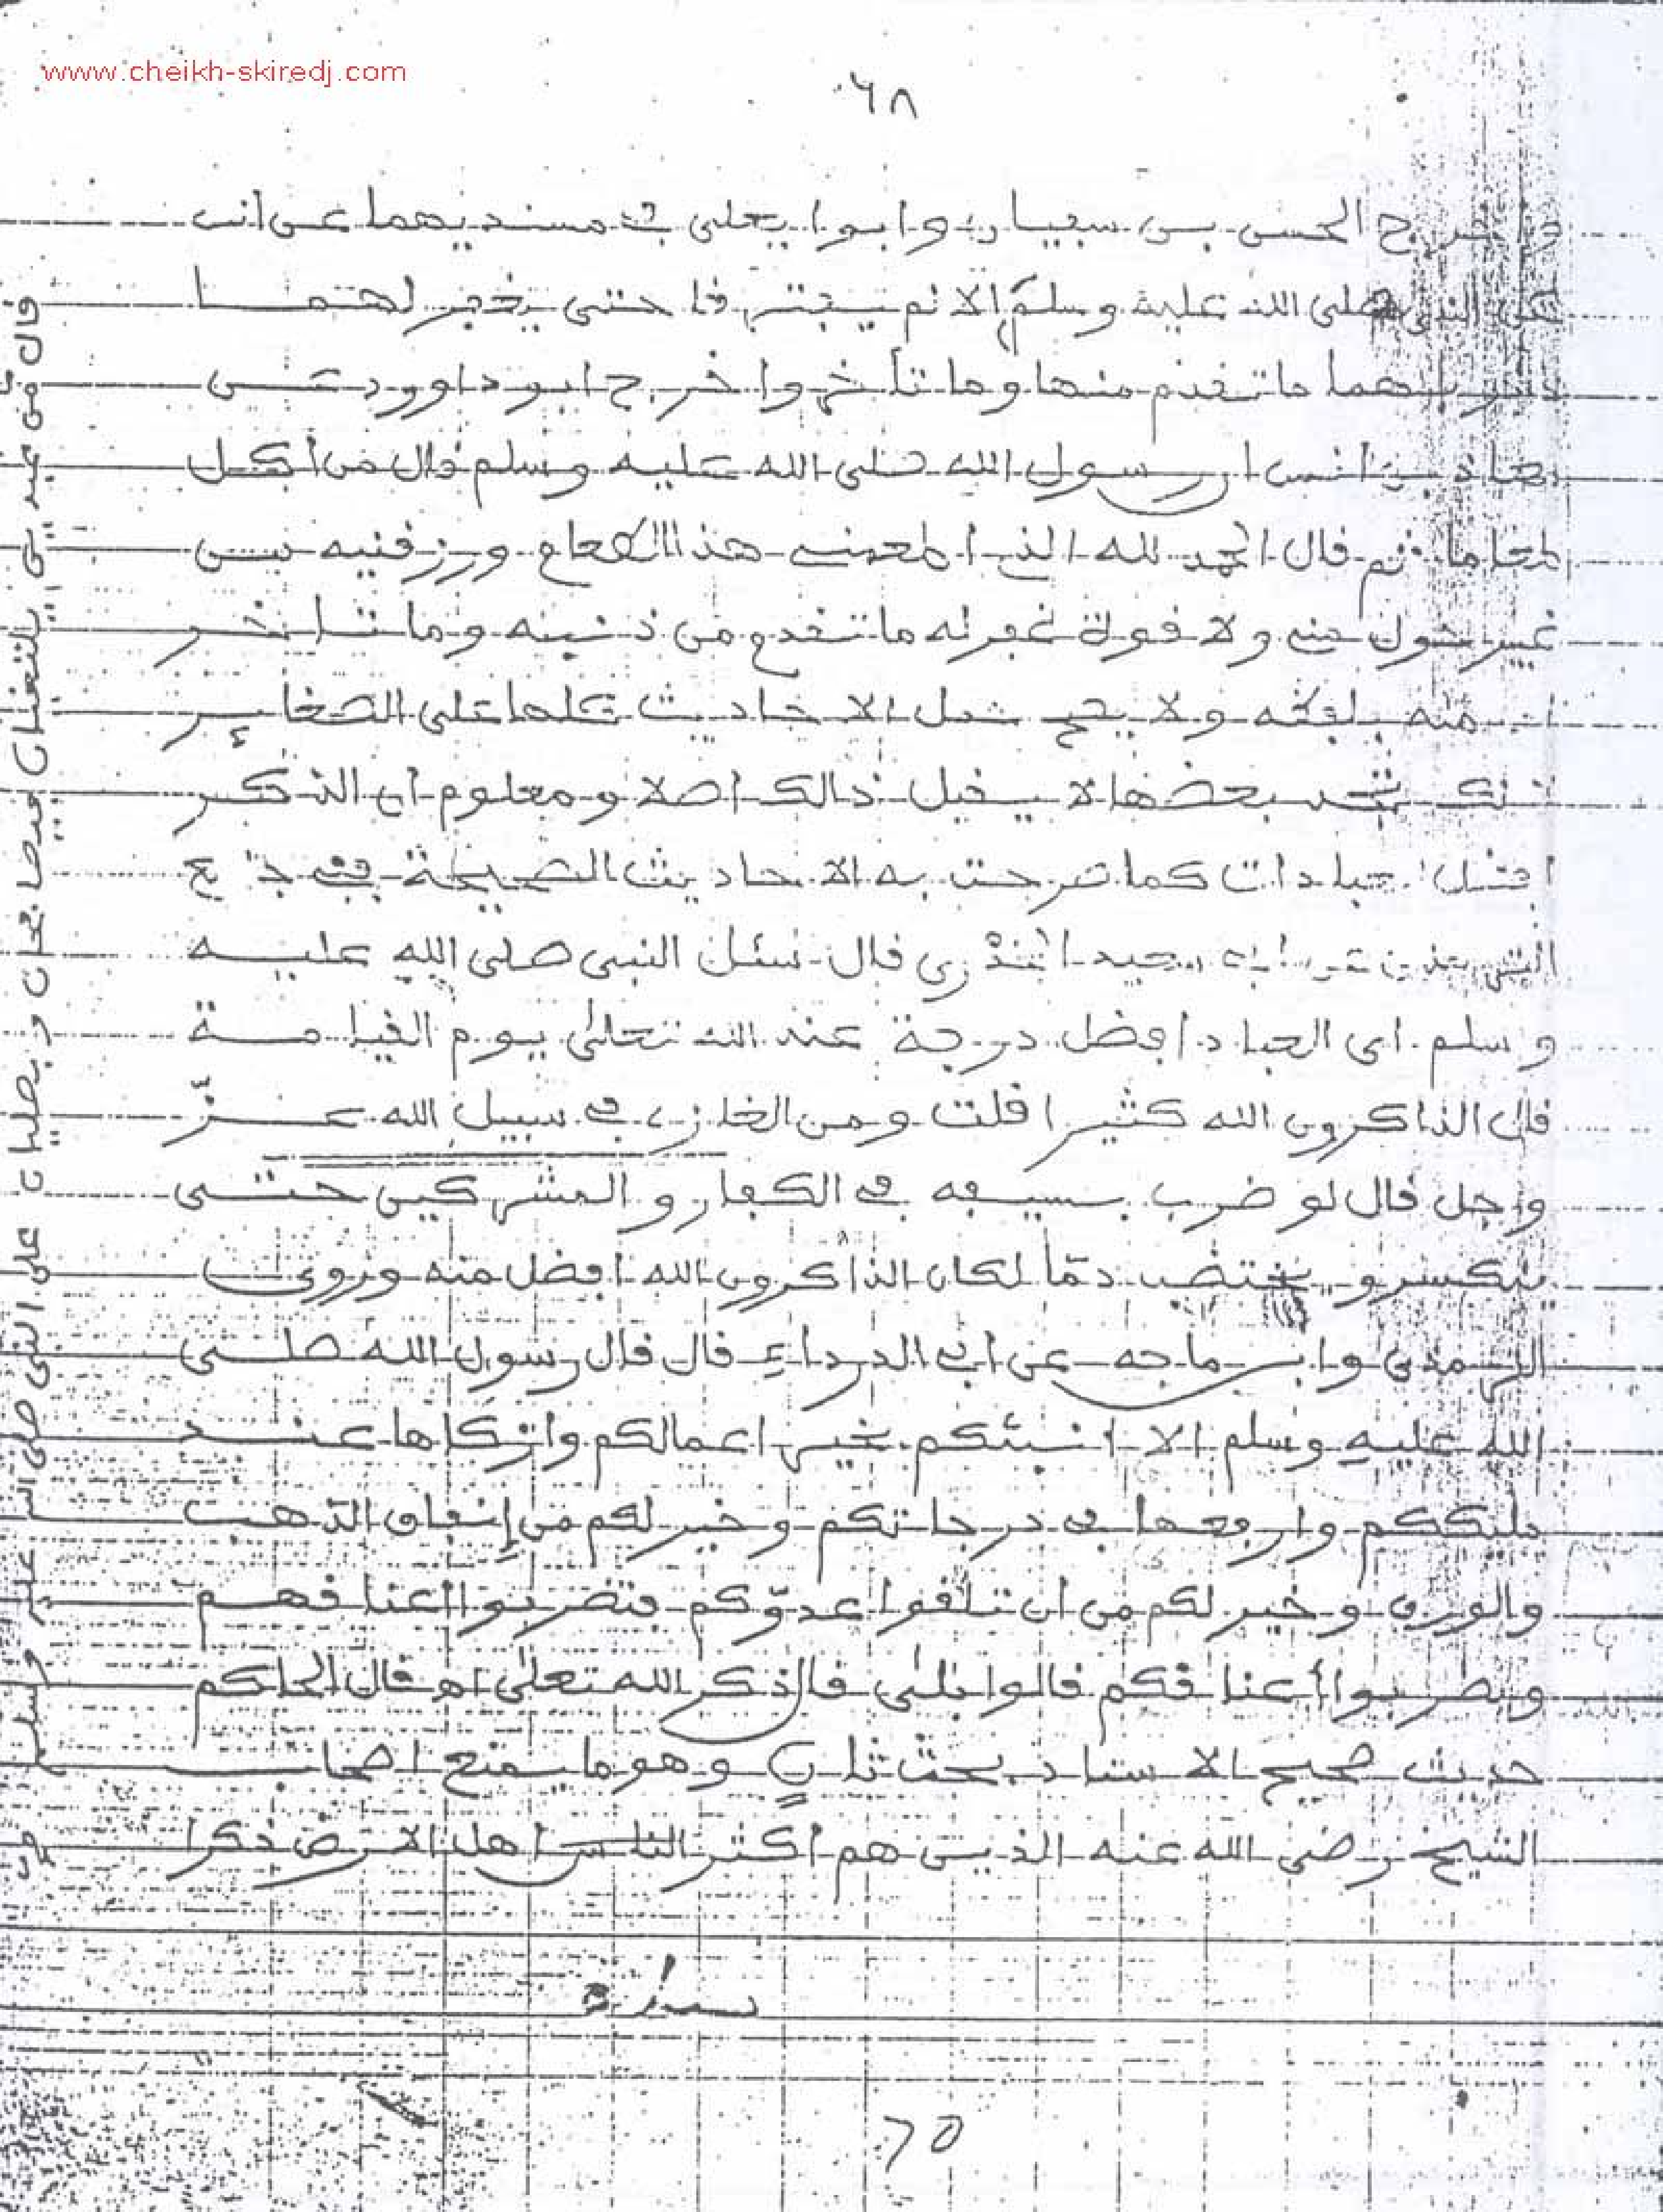 www.cheikh-skiredj.com
٦٨
واخرج الحسن بن سفيان وابوا يعلى في مسنديهما عن انس
عن النبي صلى الله عليه وسلم إلا لم يفترقا حتى يغفر لهما
ذنوبهما ما تقدم منها وما تأخر واخرج ابو داوود عن
معاذ بن انس ان رسول الله صلى الله عليه وسلم قال من أكل
طعاما ثم قال الحمد لله الذي اطعمني هذا الطعام ورزقنيه من
غير حول مني ولا قوة غفر له ما تقدم من ذنبه وما تاخر
منه بلفظه ولا يصح حمل الاحاديث كلها على الصغاير
بعضها لا يقبل ذالك اصلا ومعلوم ان الذكر
افضل العبادات كما صرحت به الاحاديث الصحيحة ففي جامع
الترمذي عن ابي سعيد الخذري قال سئل النبي صلى الله عليه
وسلم اي العباد افضل درجة عند الله تعالى يوم القيامة
قال الذاكرون الله كثيرا قلت ومن الغازي في سبيل الله عزّ
وجل قال لو ضرب بسيفه في الكفار والمشركين حتى
ينكسر ويختضب دمّا لكان الذاكرون الله افضل منه وروى
الترمذي وابن ماجه عن ابي الدرداء قال قال رسول الله صلى
الله عليه وسلم الا انبئكم بخير اعمالكم وازكاها عند
مليككم وارفعها في درجاتكم وخير لكم من إنفاق الذهب
والورق وخير لكم من ان تلقوا عدوّكم فتضربوا اعناقهم
ويضربوا أعناقكم قالوا بلى قال ذكر الله تعلى اه قال الحاكم
حديث صحيح الاسناد بحث ثانٍ وهو ما يمنع اصحاب
الشيخ رضي الله عنه الذين هم أكثر الناس اهل الارض ذكرا
قال من عبدين يلتقيان فيصافحان ويصليان على النبي صلى الله عليه وسلم
٦٥